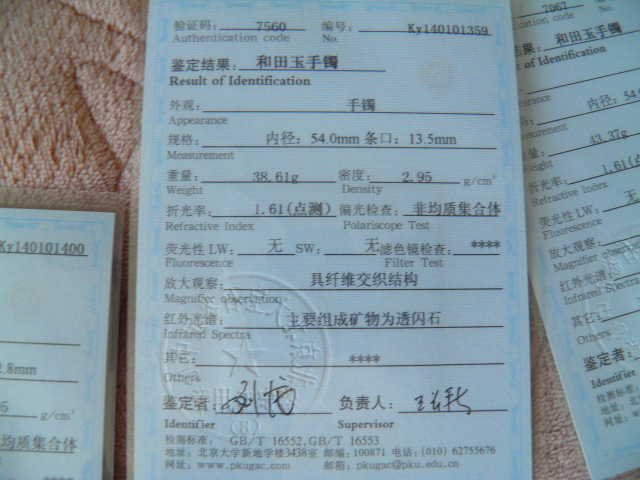 验证码: 7560 编号: Ky140101359
Authentication code No.
鉴定结果: 和田玉手镯
Result of Identification
外观: 手镯
Appearance
规格: 内径: 54.0mm 条口: 13.5mm
Measurement
重量: 38.61g 密度: 2.95 g/cm³
Weight Density
折光率: 1.61(点测) 偏光检查: 非均质集合体
Refractive Index Polariscope Test
荧光性 LW: 无 SW: 无 滤色镜检查: ****
Fluorescence Filter Test
放大观察: 具纤维交织结构
Magnifier observation
红外光谱: 主要组成矿物为透闪石
Infrared Spectra
其它: ****
Others
鉴定者: 负责人:
Identifier Supervisor
检测标准: GB/T 16552,GB/T 16553
地址: 北京大学新地学楼3438室 邮编: 100871 电话: (010) 62755676
网址: www.pkugac.com 邮箱: pkugac@pku.edu.cn
Ky140101400
2.8mm
g/cm³
均质集合体
7067
cation code
和田玉手镯
of Identification
arance
内径: 54.0
urement
43.37g
ight
1.61(点
折光率:
Refractive Index
荧光性 LW: 无
Fluorescence
放大观察:
Magnifier observat
红外光谱:
Infrared Spectra
其它:
Others
鉴定者:
Identifier
检测标准:
地址: 北京
网址: